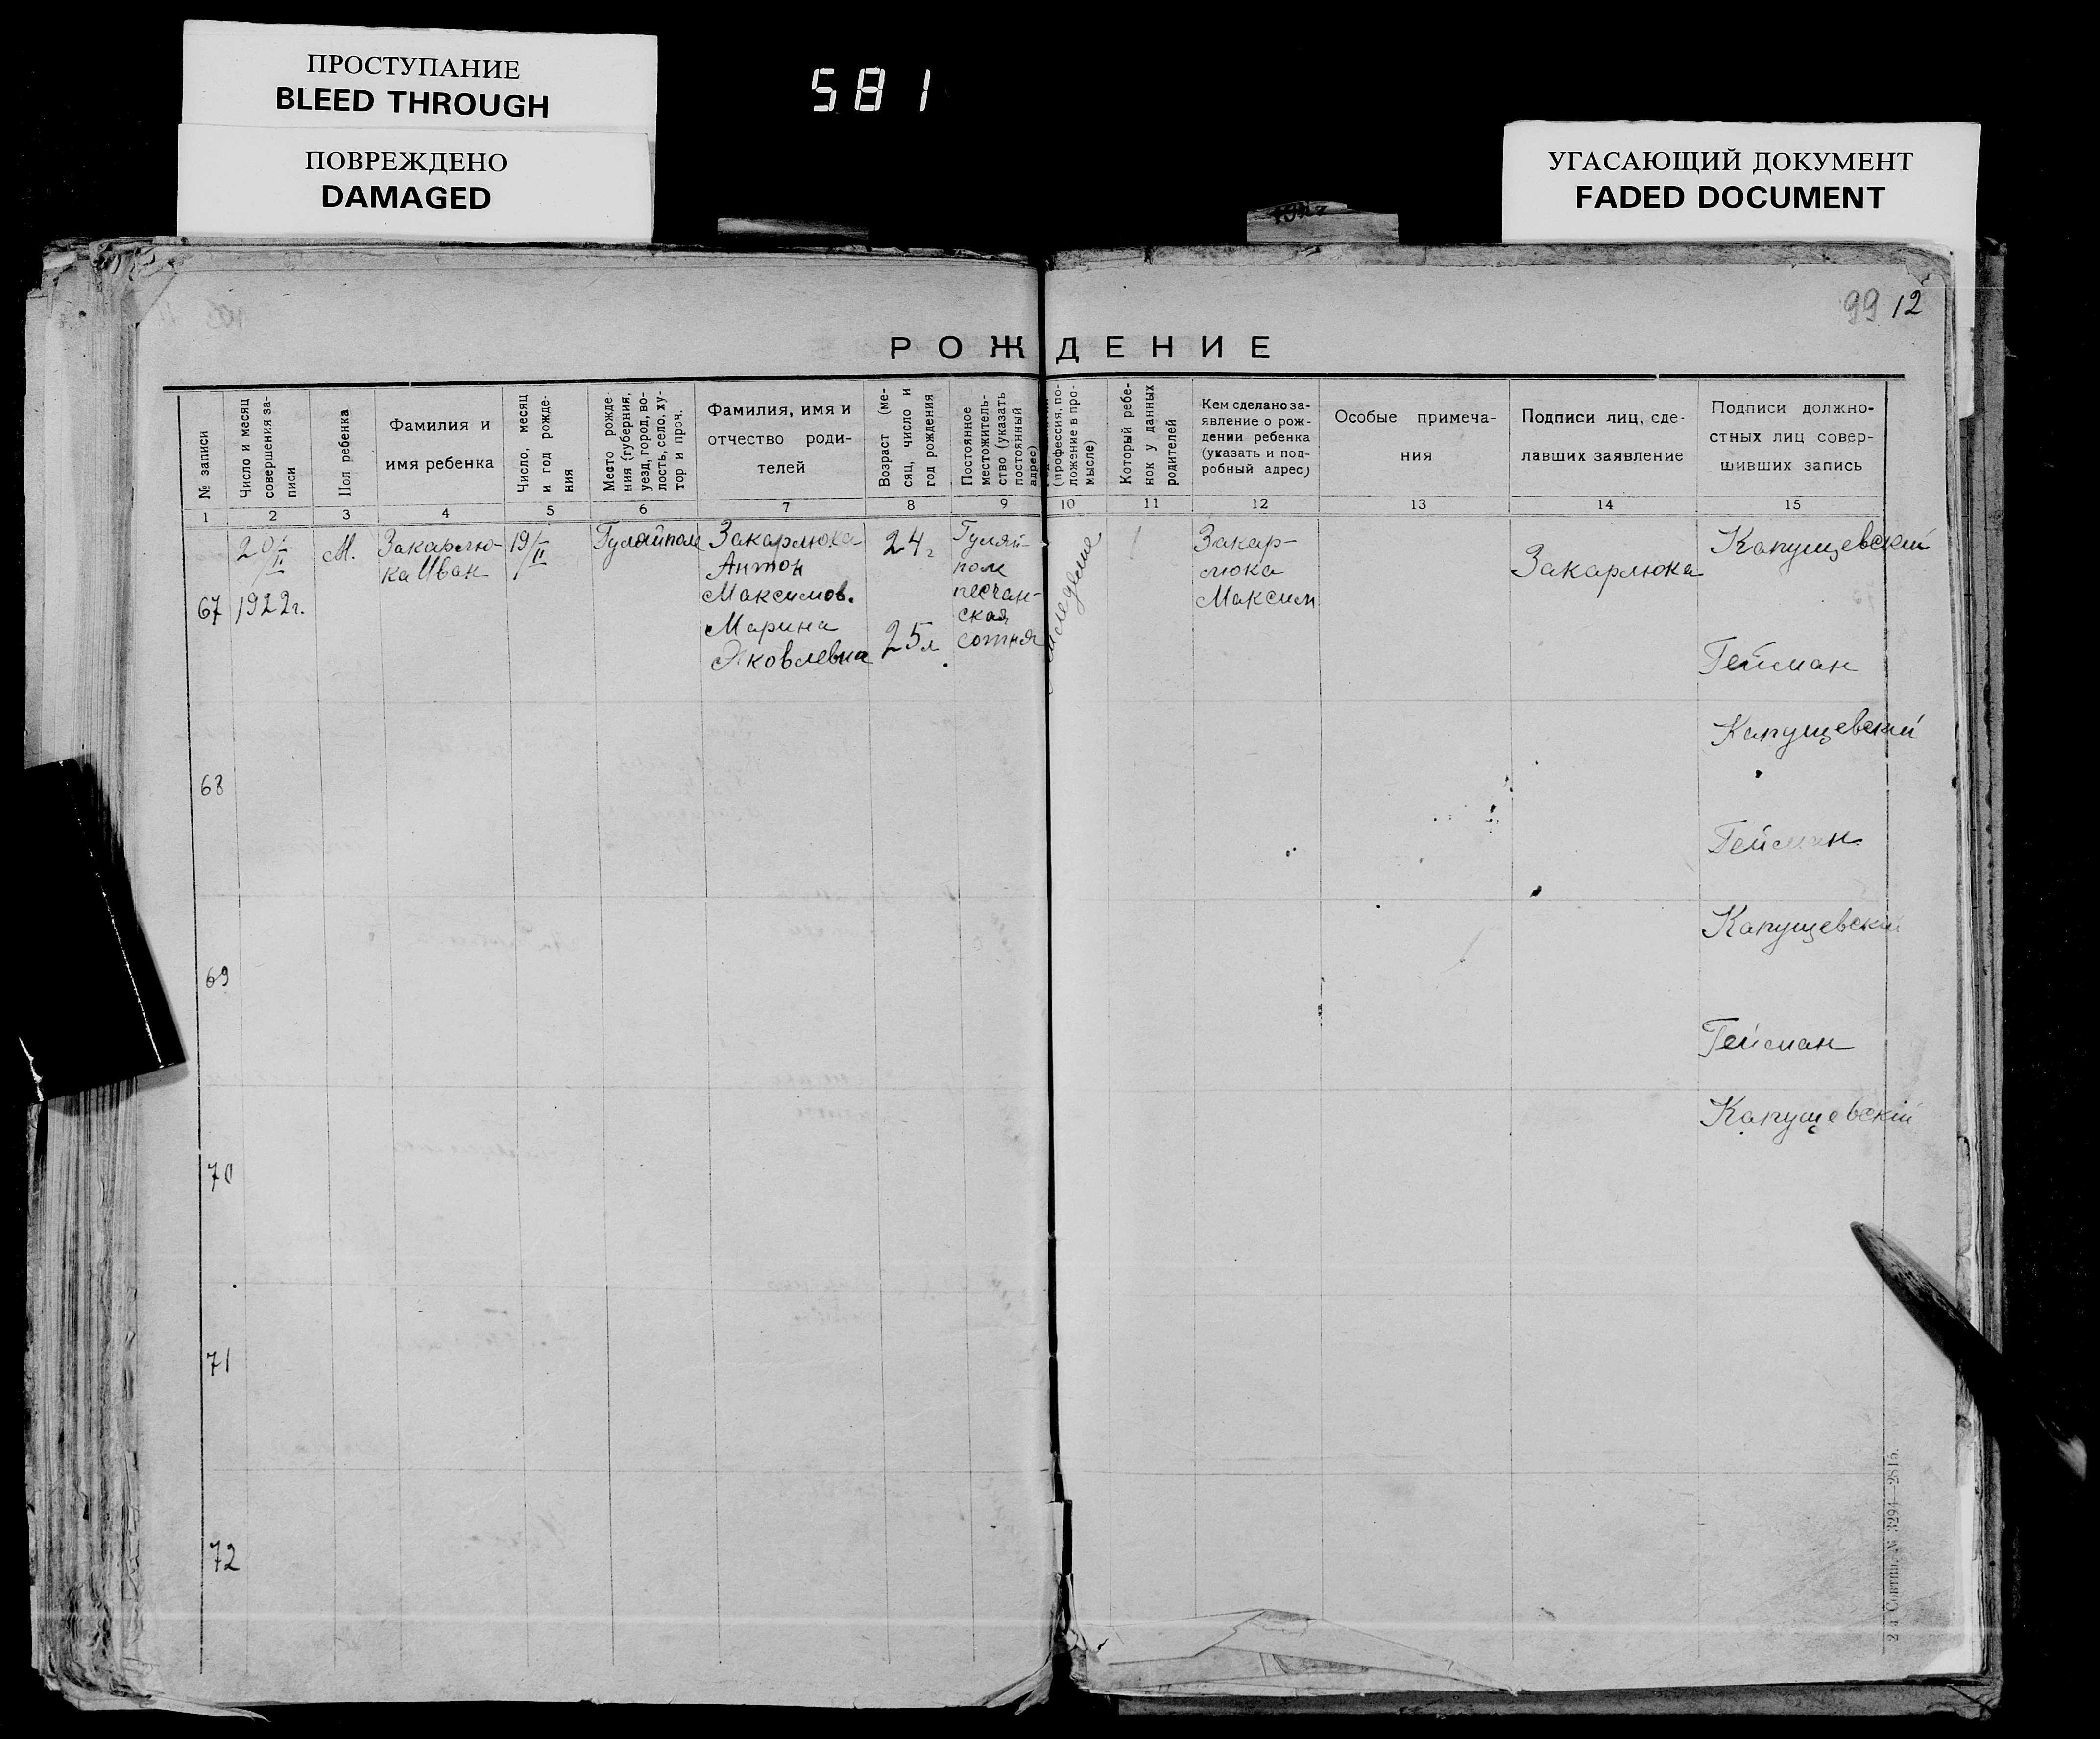 ПРОСТУПАНИЕ
BLEED THROUGH
ПОВРЕЖДЕНО
DAMAGED
581
УГАСАЮЩИЙ ДОКУМЕНТ
FADED DOCUMENT
99 12
РОЖДЕНИЕ
№ записи
Число и месяц
совершения за-
писи
Пол ребенка
Фамилия и
имя ребенка
Число, месяц
и год рожде-
ния
Место рожде-
ния (губерния,
уезд, город, во-
лость, село, ху-
тор и проч.
Фамилия, имя и
отчество роди-
телей
Возраст (ме-
сяц, число и
год рождения
Постоянное
местожитель-
ство (указать
постоянный
адрес)
(профессия, по-
ложение в про-
мысле)
Который ребе-
нок у данных
родителей
Кем сделано за-
явление о рож-
дении ребенка
(указать и под-
робный адрес)
Особые примеча-
ния
Подписи лиц, сде-
лавших заявление
Подписи должно-
стных лиц совер-
шивших запись
1 2 3 4 5 6 7 8 9 10 11 12 13 14 15
67
20/II
1922г.
М.
Закарлю-
ка Иван
19/II
Гуляйполе
Закарлюка
Антон
Максимов.
Марина
Яковлевна
24г
25л
Гуляй-
поле
песчан-
ская
сотня
1
Закар-
люка
Максим
Закарлюка
Капущевский
Гейсман
68
Капущевский
Гейсман
69
Капущевский
Гейсман
70
Капущевский
71
72